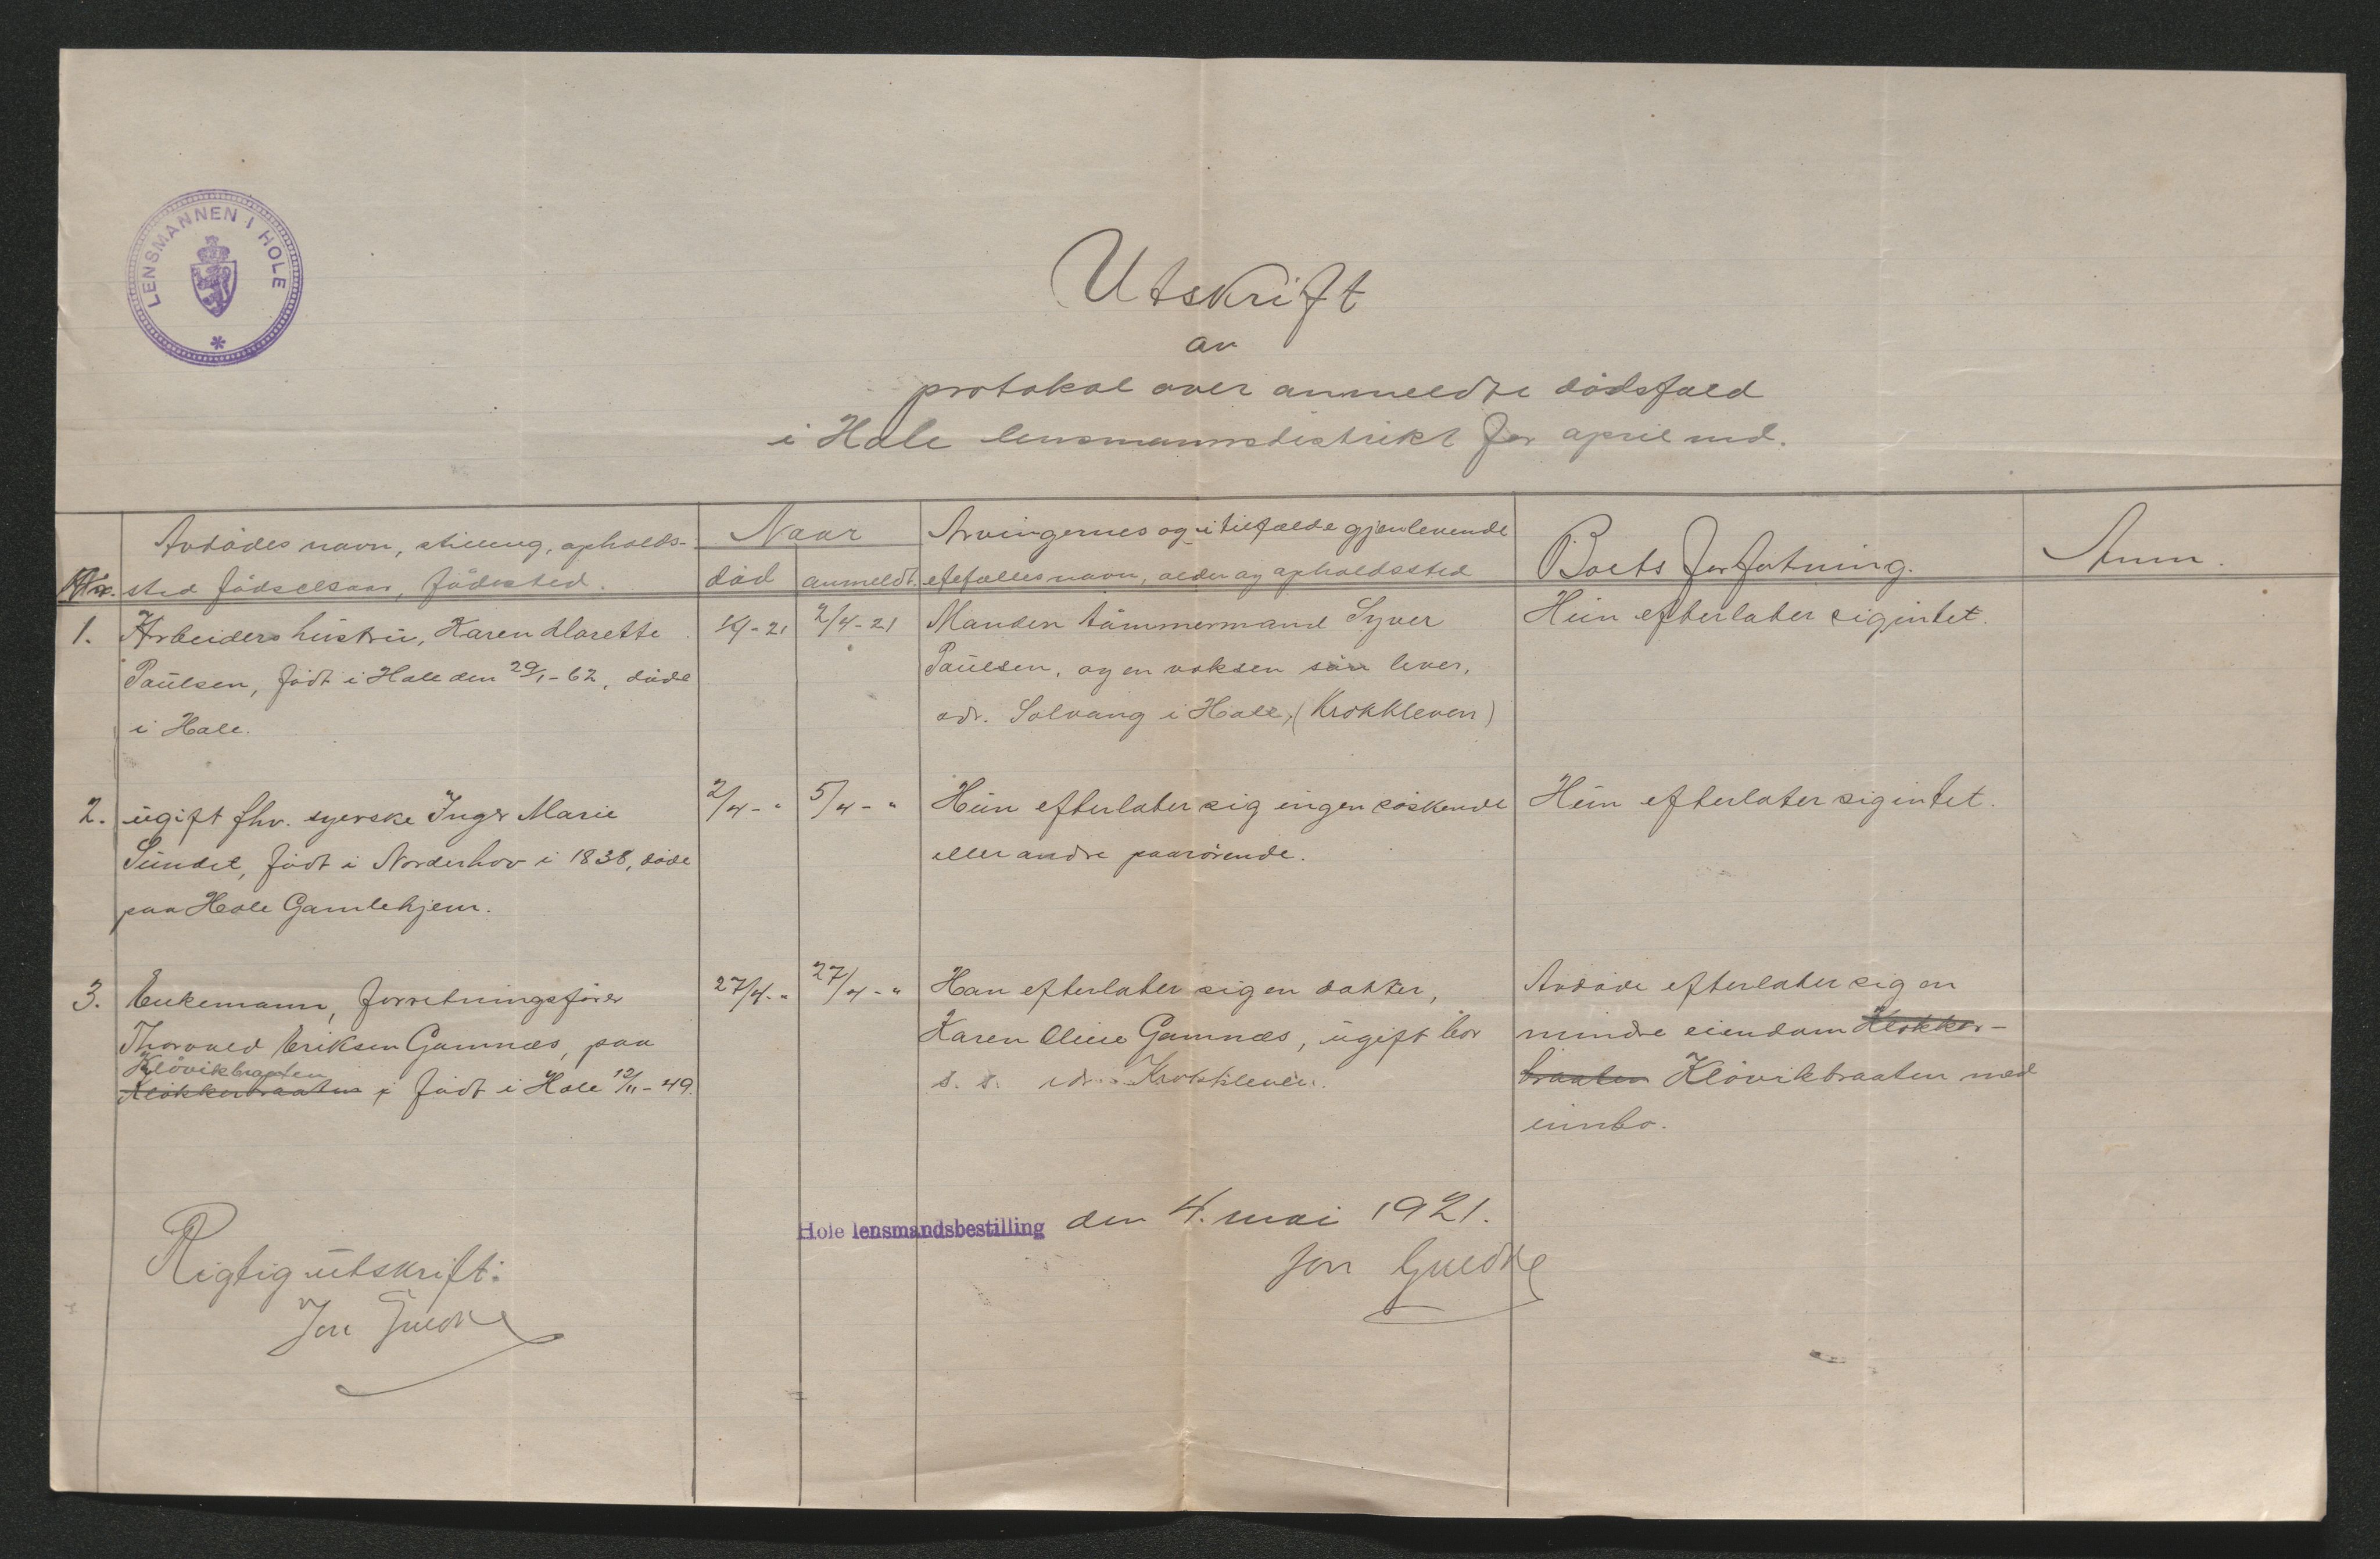 LENSMANNEN I HOLE
Utskrift
av
protokol over anmeldte dödsfald
i Hole lensmannsdistrikt for april md.
Nr.
Avdödes navn, stilling, opholds-
sted födselsaar, födested.
Naar
död
anmeldt.
Arvingernes og i tilfælde gjenlevende
ektefælles navn, alder og opholdssted
Boets forfatning.
Anm.
1.
Arbeiders hustru, Karen Marette
Paulsen, födt i Hole den 29/1-62, döde
i Hole.
1/4-21
2/4-21
Manden tömmermand Syver
Paulsen, og en voksen sön lever,
adr. Solvang i Hole, (Krokkleven)
Hun efterlater sig intet.
2.
ugift fhv. syerske Inger Marie
Sundet, födt i Norderhov i 1838, döde
paa Hole Gamlehjem.
2/4-"
5/4-"
Hun efterlater sig ingen söskende
eller andre paarörende.
Hun efterlater sig intet.
3.
Enkemann, forretningsförer
Thorvald Eriksen Gamnæs, paa
Klövikbraaten
Klokkerbraaten, födt i Hole 12/11-49.
27/4-"
27/4-"
Han efterlater sig en datter,
Karen Oline Gamnæs, ugift bor
s. s. adr. Krokkleven.
Avdöde efterlater sig en
mindre eiendom Klokker-
braaten Klövikbraaten med
innbo.
Hole lensmandsbestilling den 4. mai 1921.
Jon Guldal
Rigtig utskrift:
Jon Guldal